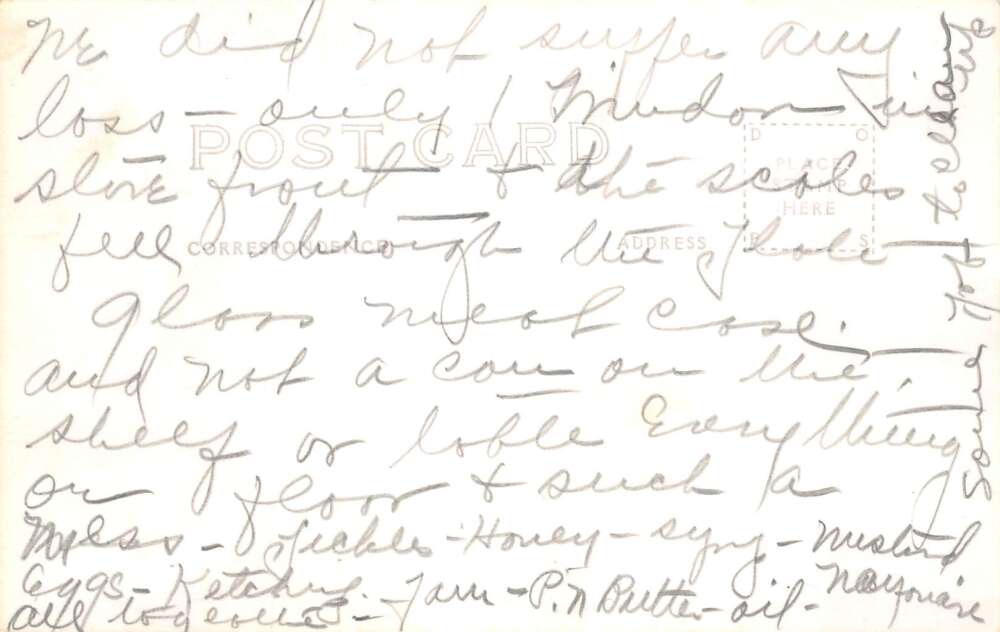 We did not suffer any
loss — only 1 Window in
store front — & the scales
fell through the Plate
glass meat case. —
and not a can on the
shelf or table Everything
on floor & such a
Mess — Pickles - Honey - syrup - mustard
Eggs - Ketchup - Jam - P.N Butter - oil - Mayonaise
all together -
Some Job to clean up
POST CARD
CORRESPONDENCE
ADDRESS
PLACE
STAMP
HERE